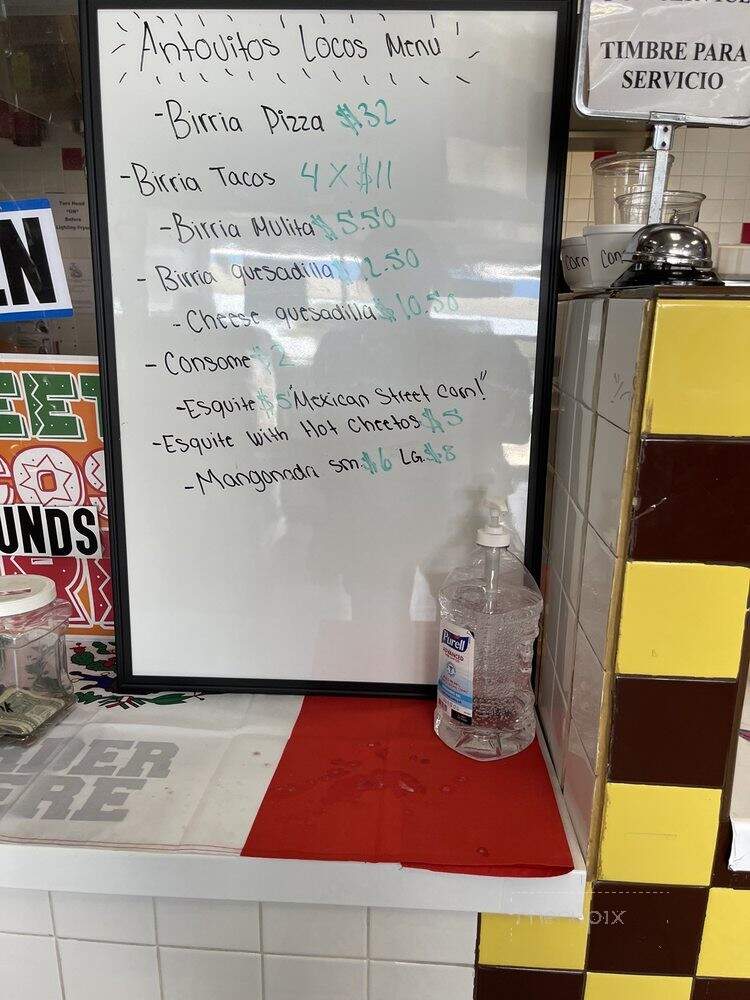 Antouitos Locos Menu
-Birria Pizza $32
-Birria Tacos 4 X $11
-Birria Mulita $5.50
- Birria quesadilla 2.50
- Cheese quesadilla $10.50
- Consome $2
-Esquite $5 "Mexican Street corn!"
-Esquite with Hot Cheetos $5
-Mangonada sm. $6 LG. $8
TIMBRE PARA
SERVICIO
Corn
Purell
ADVANCED
UNDS
RDER
ERE